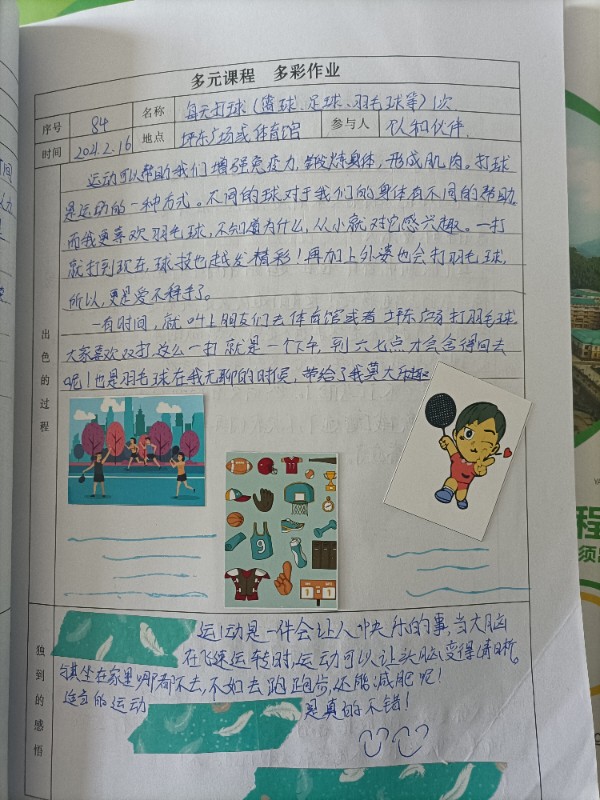 多元课程 多彩作业
序号 84 名称 每天打球(篮球、足球、羽毛球等)1次
时间 2021.2.16 地点 坪东广场或体育馆 参与人 队和伙伴
出色的过程
运动可以帮助我们增强免疫力,锻炼身体,形成肌肉。打球
是运动的一种方式。不同的球对于我们的身体有不同的帮助。
而我更喜欢羽毛球,不知道为什么,从小就对它感兴趣。一打
就打到现在,球技也越发精彩!再加上外婆也会打羽毛球,
所以,更是爱不释手了。
一有时间,就叫上朋友们去体育馆或者坪东广场打羽毛球
大家喜欢双打,这么一打就是一个下午,到六七点才会舍得回去
呢!也是羽毛球在我无聊的时候,带给了我莫大乐趣
9
1 1
独到的感悟
运动是一件会让人快乐的事,当大脑
在飞速运转时,运动可以让头脑变得清晰。
与其坐在家里哪都不去,不如去跑跑步,还能减肥呢!
适当的运动 是真的不错!
程
须